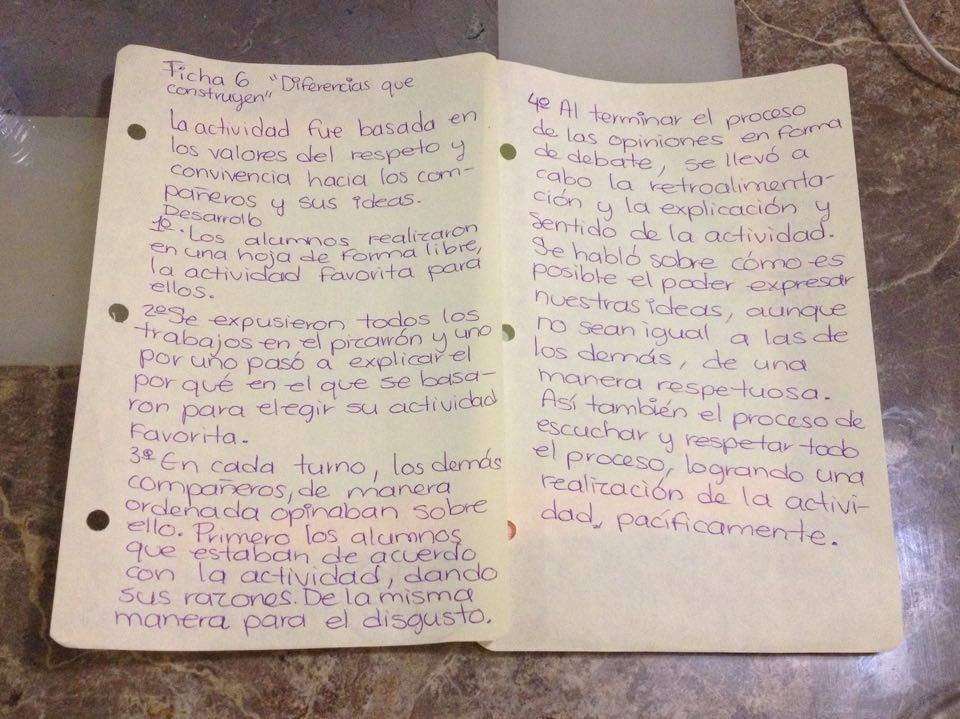 Ficha 6 "Diferencias que
construyen"
La actividad fue basada en
los valores del respeto y
convivencia hacia los com-
pañeros y sus ideas.
Desarrollo
1º. Los alumnos realizaron
en una hoja de forma libre,
la actividad favorita para
ellos.
2º Se expusieron todos los
trabajos en el pizarrón y uno
por uno pasó a explicar el
por qué en el que se basa-
ron para elegir su actividad
favorita.
3º En cada turno, los demás
compañeros, de manera
ordenada opinaban sobre
ello. Primero los alumnos
que estaban de acuerdo
con la actividad, dando
sus razones. De la misma
manera para el disgusto.
4º Al terminar el proceso
de las opiniones en forma
de debate, se llevó a
cabo la retroalimenta-
ción y la explicación y
sentido de la actividad.
Se habló sobre cómo es
posible el poder expresar
nuestras ideas, aunque
no sean igual a las de
los demás, de una
manera respetuosa.
Así también el proceso de
escuchar y respetar todo
el proceso, logrando una
realización de la activi-
dad, pacíficamente.